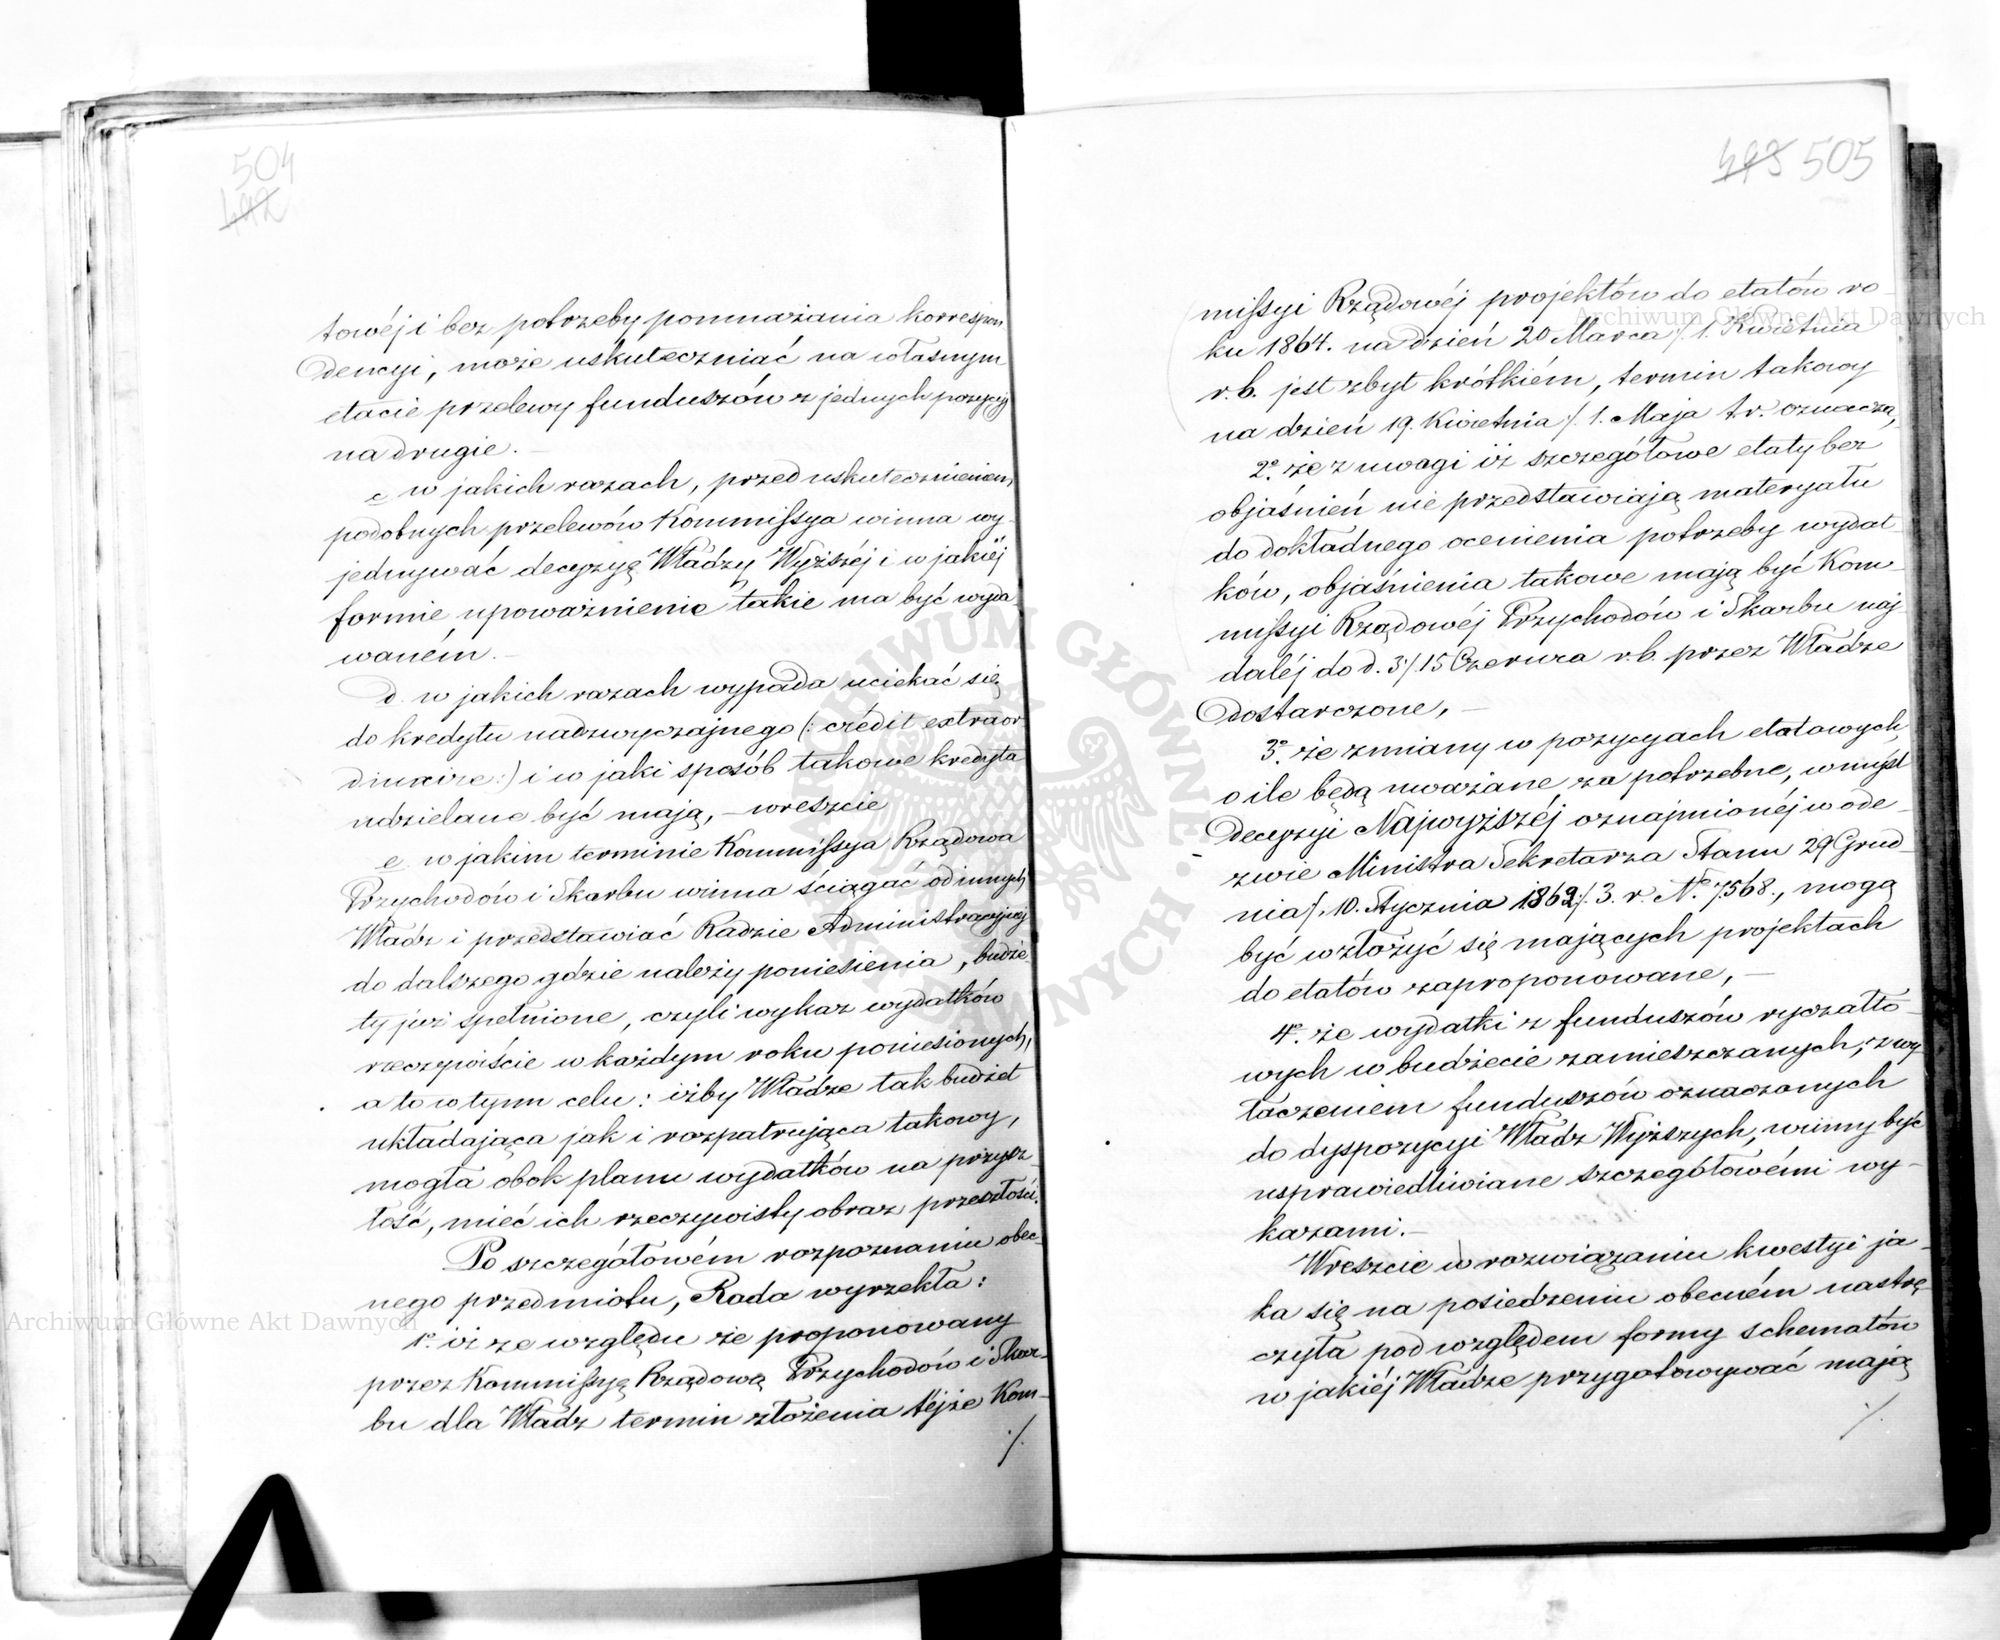 504
492
towéj i bez potrzeby pomnażania korrespon-
dencyi, może uskuteczniać na własnym
etacie przelewy funduszów z jednych pozycyj
na drugie. –
c w jakich razach, przed uskutecznieniem
podobnych przelewów Kommissya winna wy-
jednywać decyzyą Władzy Wyższéj i w jakiéj
formie upoważnienie takie ma być wyda-
waném. –
d. w jakich razach wypada uciekać się
do kredytu nadzwyczajnego (: crédit extraor-
dinaire :) i w jaki sposób takowe kredyta
udzielane być mają, – wreszcie
e. w jakim terminie Kommissya Rządowa
Przychodów i Skarbu winna ściągać od innych
Władz i przedstawiać Radzie Administracyjnej
do dalszego gdzie należy poniesienia, budże-
ty już spełnione, czyli wykaz wydatków
rzeczywiście w każdym roku poniesionych,
a to w tym celu: iżby Władze tak budżet
układająca jak i rozpatrująca takowy,
mogła obok planu wydatków na przysz-
łość, mieć ich rzeczywisty obraz przeszłości.
Po szczegółowém rozpoznaniu obec-
nego przedmiotu, Rada wyrzekła:
1º. iż ze względu że proponowany
przez Kommissyą Rządową Przychodów i Skar-
bu dla Władz termin złożenia téjże Kom-
./.
493 505
missyi Rządowéj projektów do etatów ro-
ku 1864. na dzień 20 Marca /. 1. Kwietnia
r. b. jest zbyt krótkiém, termin takowy
na dzień 19. Kwietnia /. 1. Maja t. r. oznacza,
2º. że z uwagi iż szczegółowe etaty bez
objaśnień nie przedstawiają materyału
do dokładnego ocenienia potrzeby wydat-
ków, objaśnienia takowe mają być Kom-
missyi Rządowéj Przychodów i Skarbu naj-
daléj do d. 3 /. 15 Czerwca r. b. przez Władze
dostarczone, –
3º. że zmiany w pozycyach etatowych,
o ile będą uważane za potrzebne, w myśl
decyzyi Najwyższéj oznajmionéj w ode-
zwie Ministra Sekretarza Stanu 29 Grud-
nia /. 10. Stycznia 1862 /. 3. r. Nº. 7,568., mogą
być w złożyć się mających projektach
do etatów zaproponowane, –
4º. że wydatki z funduszów ryczałto-
wych w budżecie zamieszczanych, z wy-
łączeniem funduszów oznaczonych
do dyspozycyi Władz Wyższych, winny być
usprawiedliwiane szczegółowémi wy-
kazami. –
Wreszcie w rozwiązaniu kwestyi ja-
ka się na posiedzeniu obecném nastrę-
czyła pod względem formy schematów
w jakiéj Władze przygotowywać mają
./.
Archiwum Główne Akt Dawnych
Archiwum Główne Akt Dawnych
ARCHIWUM GŁÓWNE AKT DAWNYCH